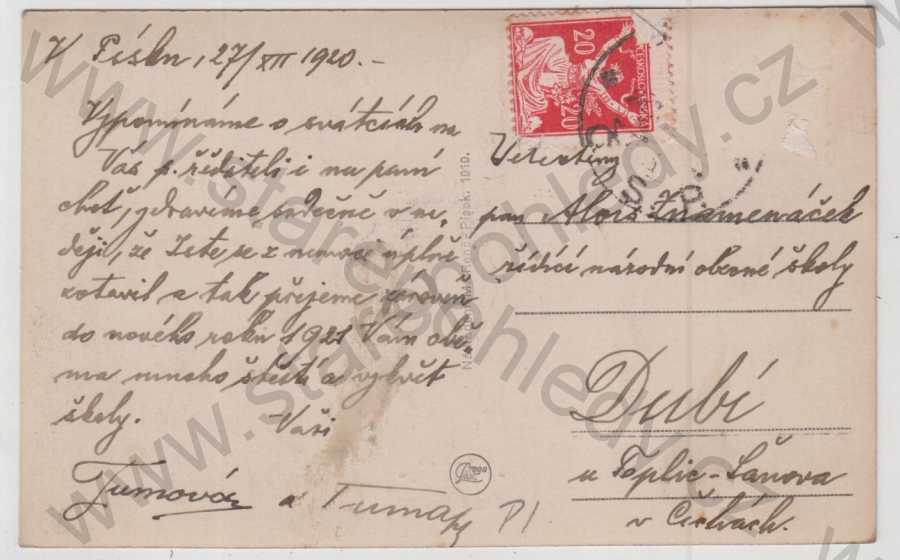 V Písku, 27/XII 1920.-
Vzpomínáme o svátcích na
Vás p. řediteli i na paní
choť, zdravíme srdečně v na„
ději, že Jste se z nemoci úplně
zotavil a tak přejeme zároveň
do nového roku 1921 Vám obě„
ma mnoho štěstí a vzkvět
školy. - Vaši
Tumová a Tuma
P1
20
20
Velectěný
pan Alois Znamenáček
řídící národní obecné školy
Dubí
u Teplic-Šanova
v Čechách.
www.starepohledy.cz